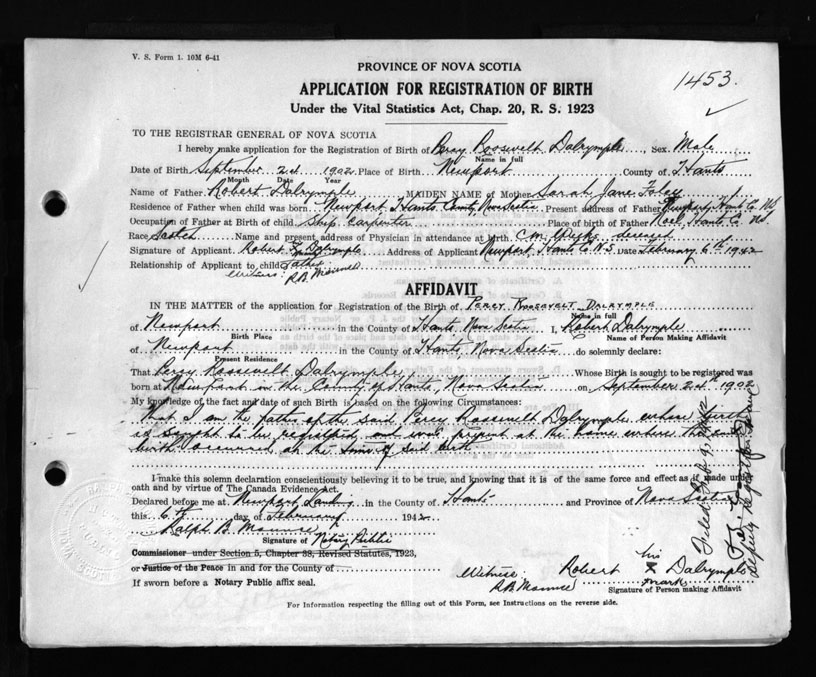 V. S. Form 1. 10M 6-41
PROVINCE OF NOVA SCOTIA
1453.
APPLICATION FOR REGISTRATION OF BIRTH
Under the Vital Statistics Act, Chap. 20, R. S. 1923
TO THE REGISTRAR GENERAL OF NOVA SCOTIA
I hereby make application for the Registration of Birth of Percy Roosevelt Dalrymple, Sex Male
Name in full
Date of Birth September 2nd 1902 Place of Birth Newport County of Hants
Month Date Year
Name of Father Robert Dalrymple MAIDEN NAME of Mother Sarah Jane
Residence of Father when child was born Newport, Hants County, Nova Scotia Present address of Father Newport, Hants Co NS
Occupation of Father at Birth of child Ship Carpenter Place of birth of Father Hants Co NS
Race Scotch Name and present address of Physician in attendance at birth C.M. deceased
Signature of Applicant Robert X Dalrymple Address of Applicant Newport, Hants Co N.S Date February 6th 1942
Relationship of Applicant to child Father
Witness: R.B.
AFFIDAVIT
IN THE MATTER of the application for Registration of the Birth of PERCY ROOSEVELT DALRYMPLE
Name in full
of Newport in the County of Hants Nova Scotia I, Robert Dalrymple
Birth Place Name of Person Making Affidavit
of Newport in the County of Hants Nova Scotia do solemnly declare:
Present Residence
That Percy Roosevelt Dalrymple Whose Birth is sought to be registered was
born at Newport in the County of Hants, Nova Scotia on September 2nd 1902
My knowledge of the fact and date of such Birth is based on the following Circumstances:
That I am the father of the said Percy Roosevelt Dalrymple whose birth
is sought to be registered, and was present at the home where the said
birth occurred at the time of said birth
I make this solemn declaration conscientiously believing it to be true, and knowing that it is of the same force and effect as if made under
oath and by virtue of The Canada Evidence Act.
Declared before me at Newport Landing in the County of Hants and Province of Nova Scotia
this 6th day of February 1942
Ralph B
Signature of Notary Public
Commissioner under Section 5, Chapter 38, Revised Statutes, 1923,
or Justice of the Peace in and for the County of
If sworn before a Notary Public affix seal.
Witness: R.B. Robert his X mark Dalrymple
Signature of Person making Affidavit
For Information respecting the filling out of this Form, see Instructions on the reverse side.
Filed Feb 9, 1942
Deputy Registrar General